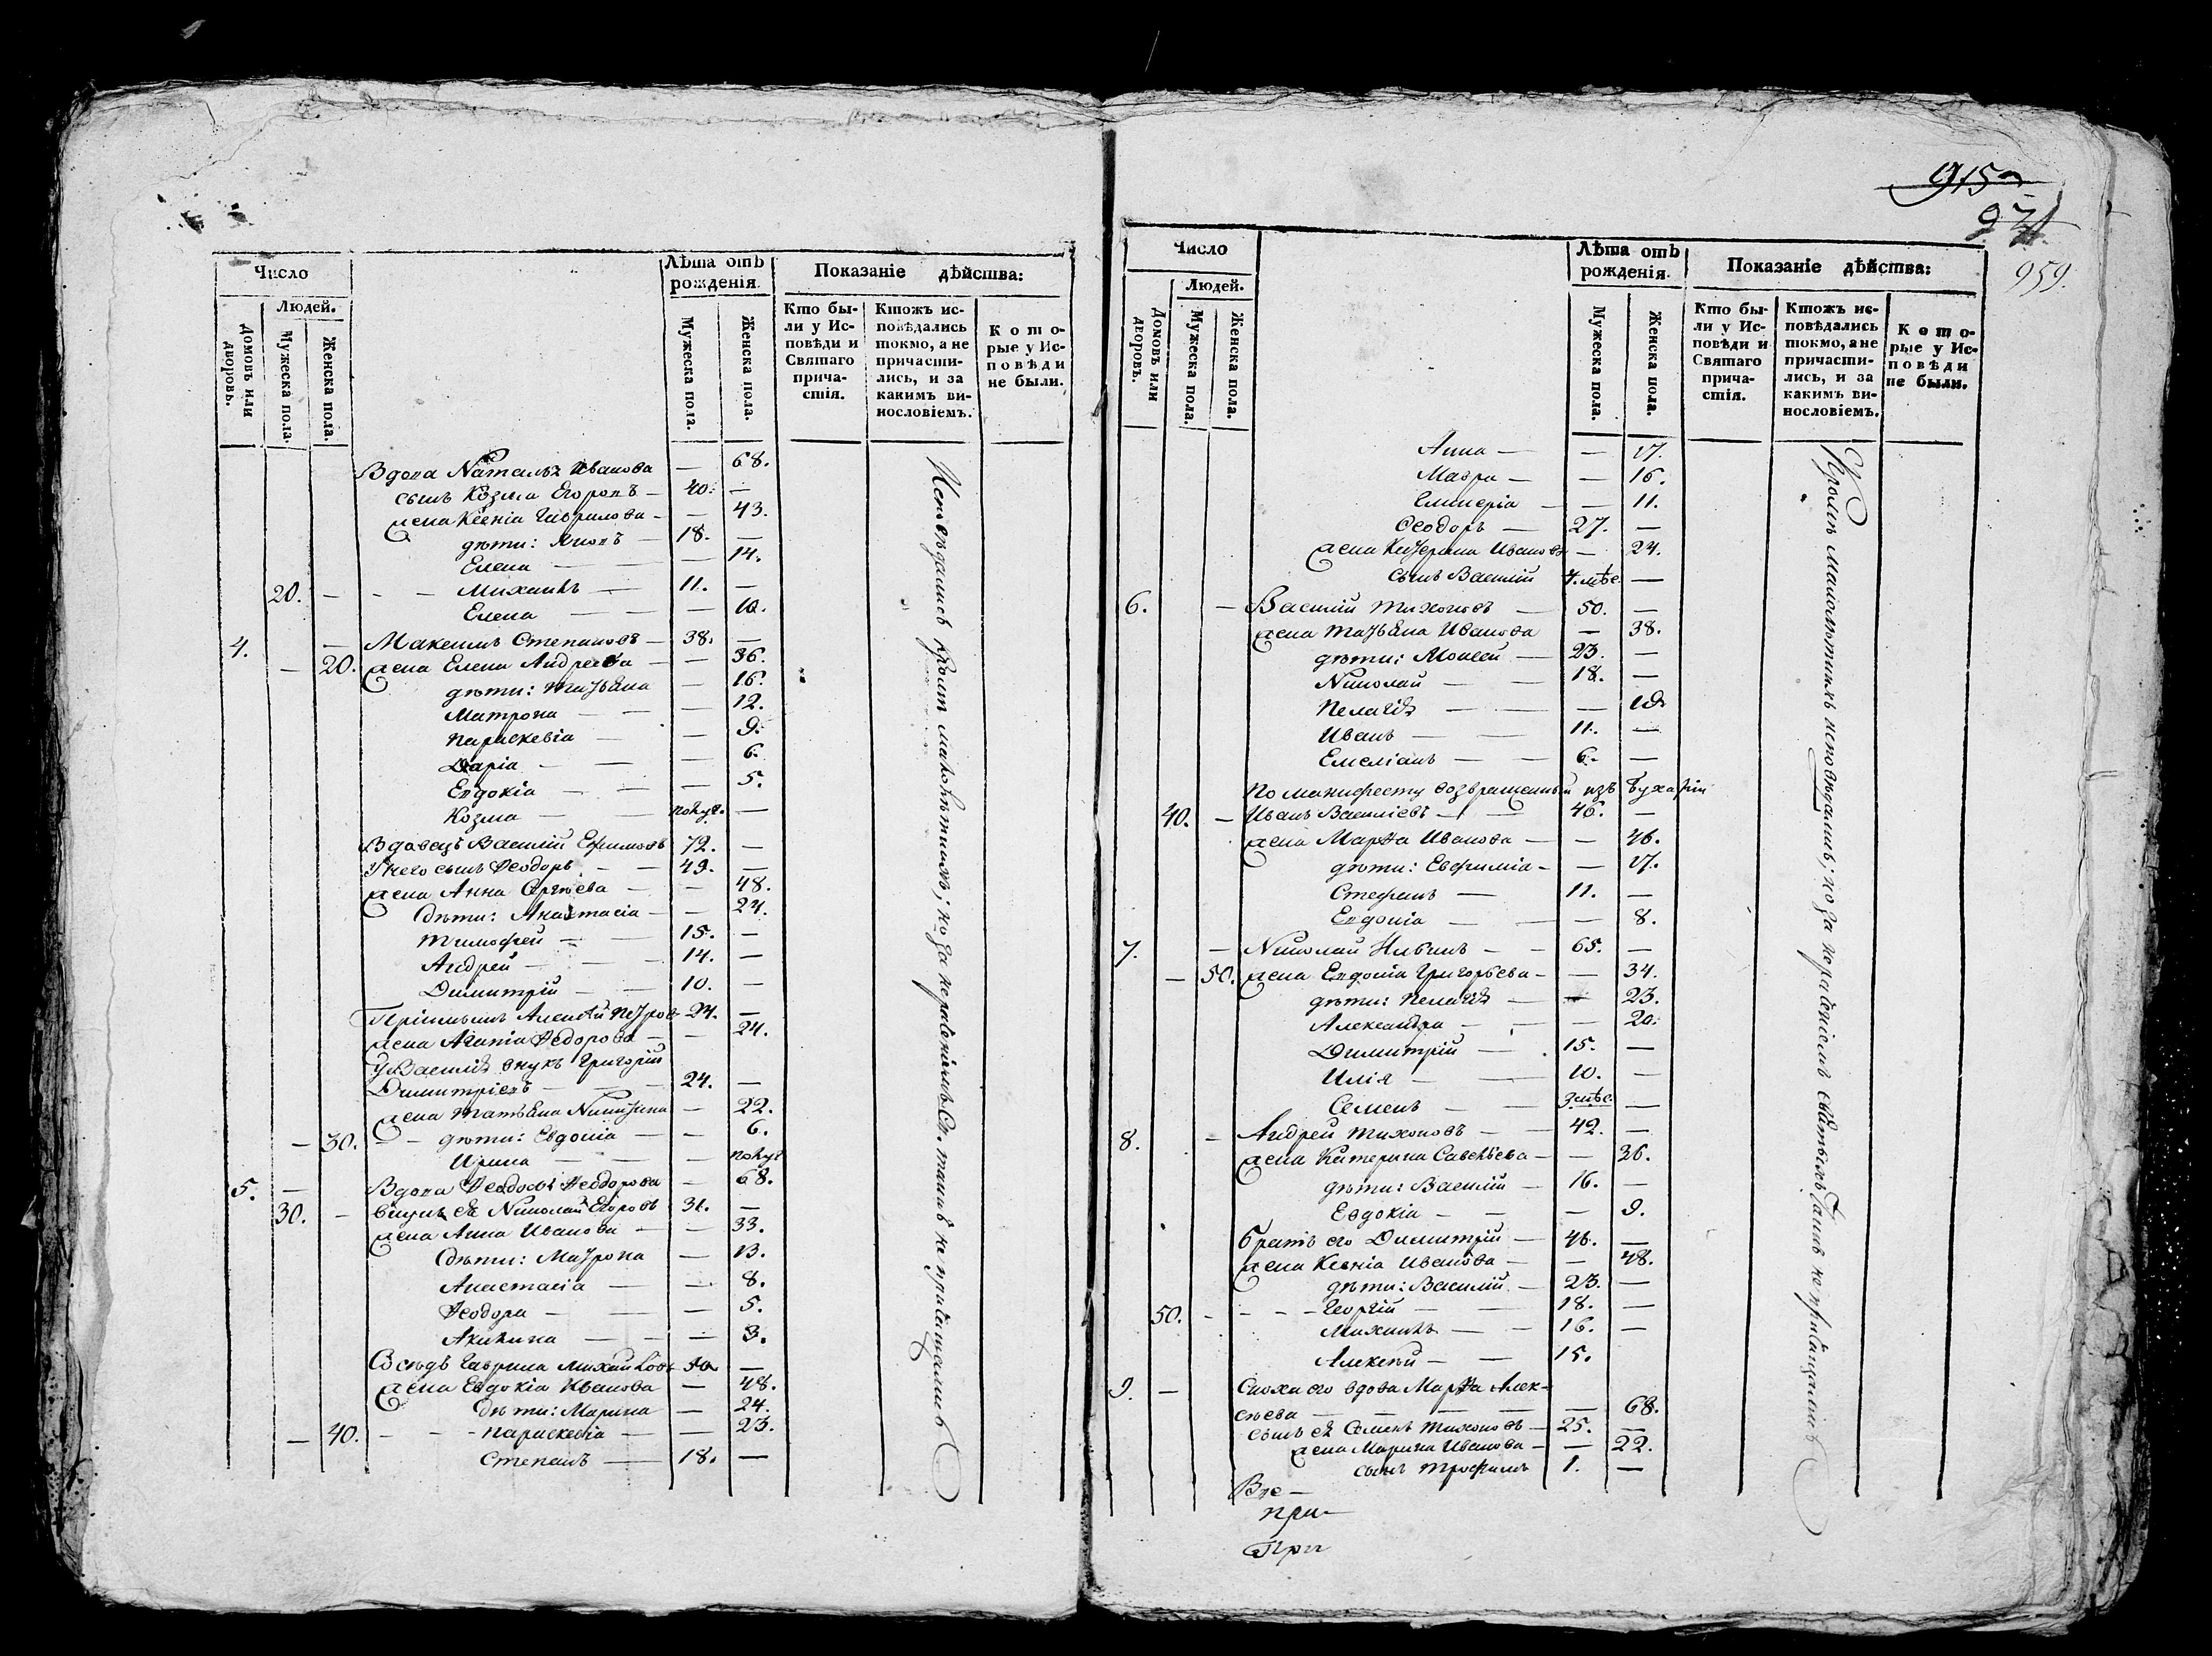 Число
Людей.
Домовъ или дворовъ.
Мужеска пола.
Женска пола.
Лѣта отъ рожденія.
Мужеска пола.
Женска пола.
Показаніе дѣйства:
Кто бы-
ли у Ис-
повѣди и
Святаго
прича-
стія.
Ктожъ ис-
повѣдались
токмо, а не
причасти-
лись, и за
какимъ ви-
нословіемъ.
К о т о-
рые у Ис-
п о в ѣ д и
не были.
Вдова Наталья Иванова — 68.
сынъ Козма Егоровъ — 40. —
жена Ксенія Гаврилова — — 43.
дѣти: — 18. —
Елена — — 14.
20. — — — Михаилъ — 11. —
Елена — — — 10.
4. — Максимъ Степановъ — 38. —
— 20. жена Елена Андреева — — 36.
дѣти: Татьяна — 16.
Матрона — — 12.
Параскевія — — 9.
Дарія — — — 6.
Евдокія — — — 5.
Козма — — полуг. —
Вдовецъ Василій Ефимовъ 72. —
У него сынъ Ѳеодоръ — — 49. —
жена Анна Сергѣева — — 48.
Дѣти: Анастасія — — 24.
Тимофей — — 15. —
Андрей — — 14. —
Димитрій — — 10. —
Пріимышъ Алексѣй Петровъ 24. —
жена Агапія Ѳедорова — — 24.
У Василія внукъ Григорій
Димитріевъ — — 24. —
жена Татьяна Никитина — 22.
— 30. — дѣти: Евдокія — — 6.
Ирина — — — полуг
5. — Вдова Ѳеодосья Ѳеодорова — 68.
30. — сынъ ея Николай Егоровъ 31. —
жена Анна Иванова — — 33.
Дѣти: Матрона — 13.
Анастасія — — 8.
Ѳеодора — — — 5.
Акилина — — — 3.
Сосѣдъ Гаврила Михайловъ 50 —
жена Евдокія Иванова — 48.
Дѣти: Марина — 24.
— 40. — — — Параскевія — — 23.
Степанъ — 18. —
Исповѣдались кромѣ малолѣтныхъ; но за нераченіемъ Св. таинъ не причащались
915
921
959.
Число
Людей.
Домовъ или дворовъ.
Мужеска пола.
Женска пола.
Лѣта отъ рожденія.
Мужеска пола.
Женска пола.
Показаніе дѣйства:
Кто бы-
ли у Ис-
повѣди и
Святаго
прича-
стія.
Ктожъ ис-
повѣдались
токмо, а не
причасти-
лись, и за
какимъ ви-
нословіемъ.
К о т о-
рые у Ис-
п о в ѣ д и
не были.
Анна — — 17.
Мавра — — 16.
Гликерія — — 11.
Ѳеодоръ — 27. —
жена Катерина Иванова — 24.
сынъ Василій 4. мѣс. —
6. — Василій Тихоновъ — 50. —
жена Татьяна Иванова — 38.
дѣти: Моисей — 23. —
Николай — — 18. —
Пелагія — — —
Иванъ — — 11. —
Емеліанъ — — 6. —
По манифесту возвращенный изъ Бухаріи
40. — Иванъ Васильевъ — — 46. —
жена Марѳа Иванова — — 46.
дѣти: Евфимія — — 17.
Стефанъ — 11. —
Евдокія — — — 8.
7. — Николай — — 65. —
— 50. жена Евдокія Григорьева — — 34.
дѣти: Пелагія — — 23.
Александра — — — 20.
Димитрій — 15. —
Илія — — 10. —
Семенъ — — 9 мѣс. —
8. — Андрей Тихоновъ — — 42. —
жена Катерина Савельева — — 36.
дѣти: Василій — 16. —
Евдокія — — — 9.
братъ его Димитрій — 46. —
жена Ксенія Иванова — — 48.
дѣти: Василій — 23. —
50. — — — — Георгій — — 18. —
Михаилъ — — 16. —
Алексѣй — — 15.
9. — Сноха его вдова Марѳа Алек-
сѣева — — — — — 68.
сынъ ея Семенъ Тихоновъ — 25. —
жена Марина Иванова — — 22.
сынъ Трофимъ 1. —
Все —
при-
При
Кромѣ малолѣтныхъ исповѣдались; но за нераченіемъ святыхъ Таинъ не причащались